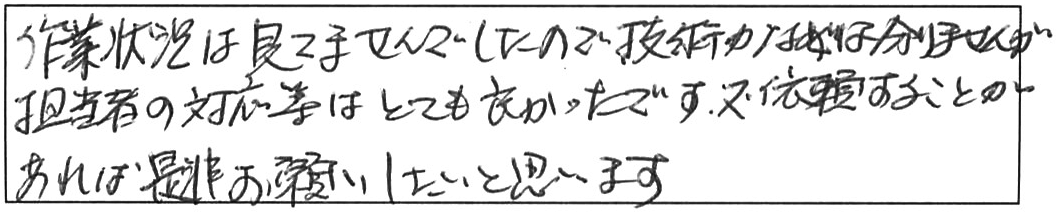 作業状況は見てませんでしたので技術力などは分りませんが
担当者の対応等はとても良かったです。又依頼することが
あれば是非お願いしたいと思います